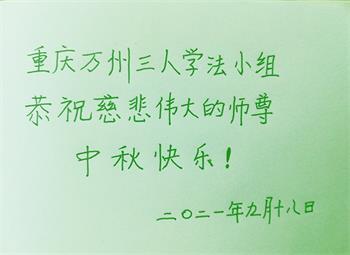 重庆万州三人学法小组
恭祝慈悲伟大的师尊
中秋快乐！
二〇二一年九月十八日